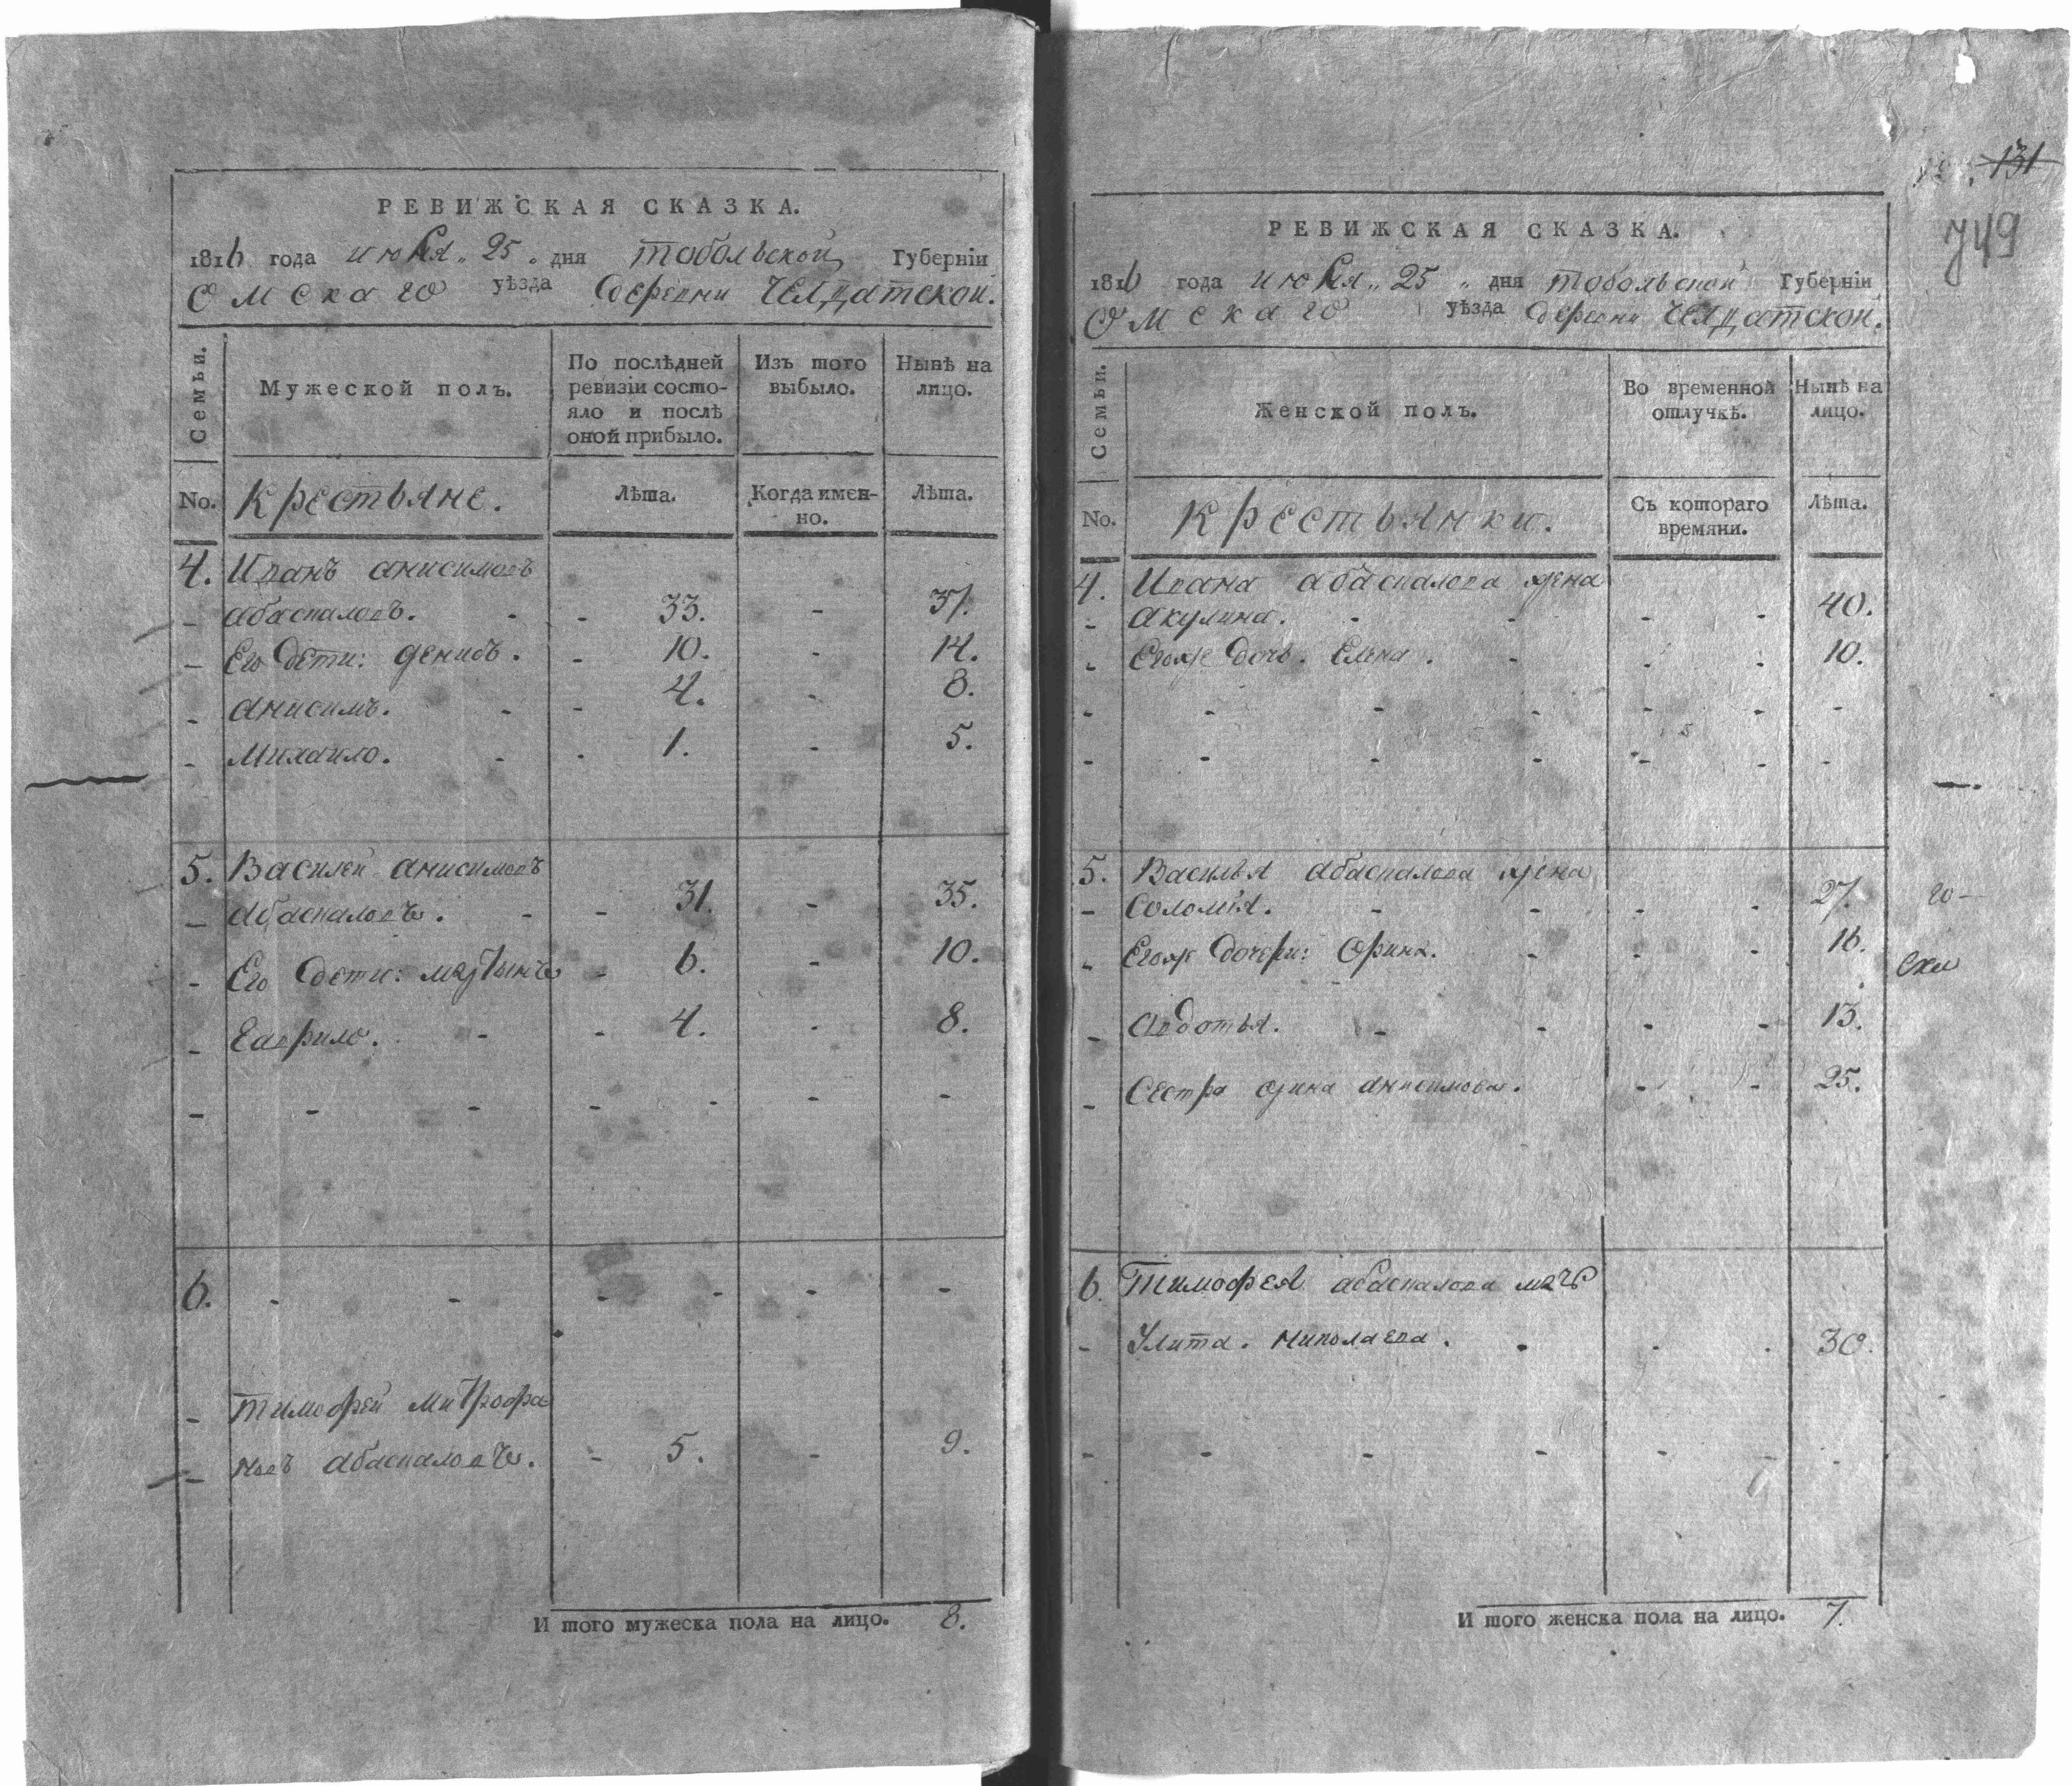 РЕВИЖСКАЯ СКАЗКА.
1816 года июля „ 25 „ дня тобольской Губерніи
Омскаго уѣзда деревни Чеддатской.
Семьи. Мужеской полъ. По послѣдней ревизіи состояло и послѣ оной прибыло. Изъ того выбыло. Нынѣ на лицо.
No. Крестьяне. Лѣта. Когда именно. Лѣта.
4. Иванъ анисимовъ
- абаскаловъ. - - 33. - 37.
- Его дети: денисъ. - 10. - 14.
- анисимъ. - - 4. - 8.
- Михаило. - - 1. - 5.
5. Василей анисимовъ
- абаскаловъ. - - 31. - 35.
- Его дети: мартынъ - 6. - 10.
- Гаврило. - - 4. - 8.
- - - - - - -
6. - - - - - -
- тимофей Митрофа
- новъ абаскаловъ. - 5. - 9.
И того мужеска пола на лицо. 8.
131
749
РЕВИЖСКАЯ СКАЗКА.
1816 года июля „ 25 „ дня тобольской Губерніи
Омскаго уѣзда деревни Чеддатской.
Семьи. Женской полъ. Во временной отлучкѣ. Нынѣ на лицо.
No. Крестьянки. Съ котораго времяни. Лѣта.
4. Ивана абаскалова жена
- акулина. - - - - 40.
- Егоже дочь. Елена. - - - 10.
- - - - - - -
- - - - - - -
5. Василья абаскалова жена
- Соломия. - - - - 27.
- Егоже дочери: Орина. - - - 16.
- Авдотья. - - - - 13.
- Сестра орина анисимова. - - 25.
6. Тимофея абаскалова мать
- Улита. Николаева. - - - 30.
- - - - - - -
И того женска пола на лицо. 7.